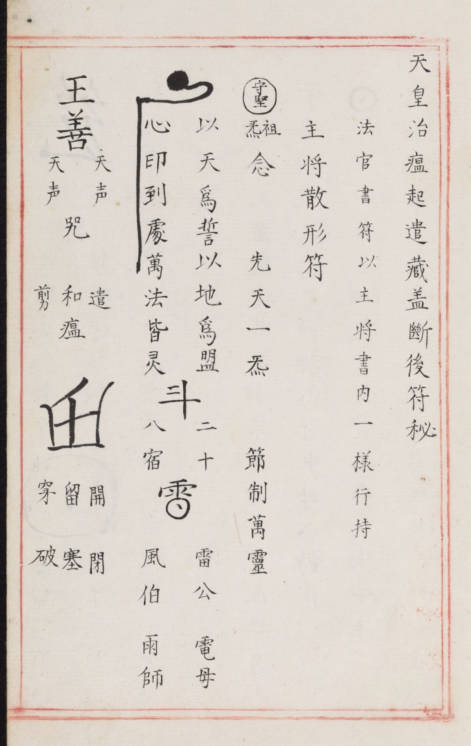 天皇治瘟起遣藏盖斷後符秘
法官書符以主將書内一樣行持
主將散形符
守聖
祖炁念 先天一炁 節制萬靈
以天爲誓以地爲盟 二十 雷公 電母
心印到處萬法皆灵 斗 八宿 雷 風伯 雨師
王善 天声 天声 咒 遣 和瘟 剪 開 閉 留 塞 穿 破